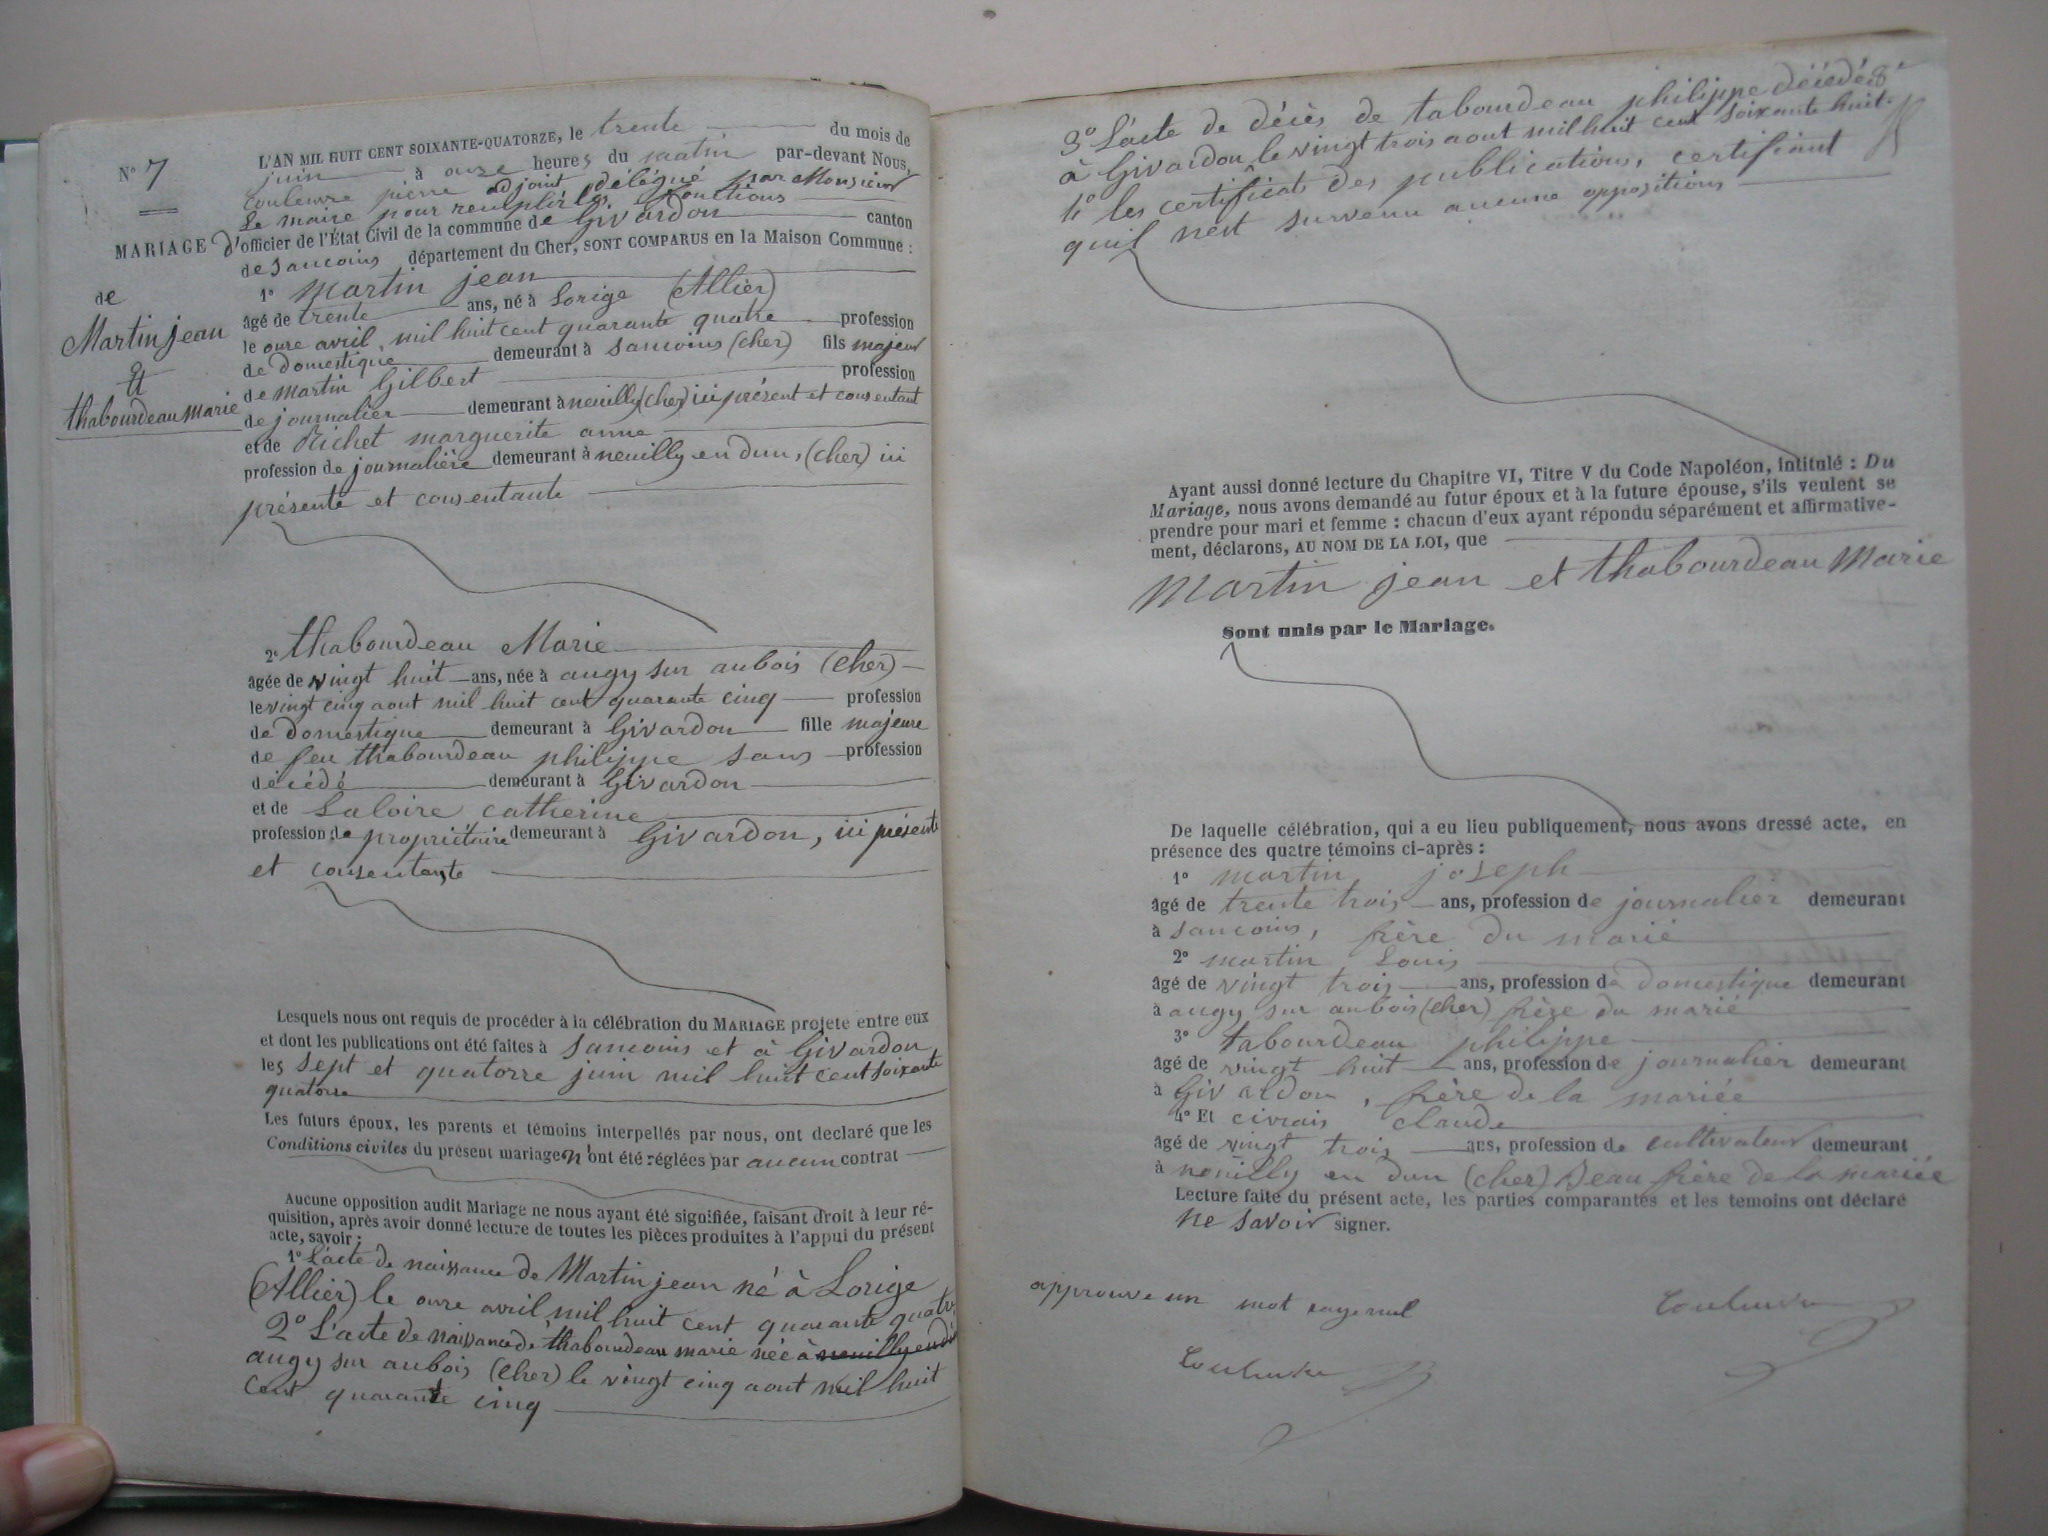 N° 7
MARIAGE
de
Martin jean
Et
thabourdeau Marie
L'AN MIL HUIT CENT SOIXANTE-QUATORZE, le trente du mois de
juin à onze heures du matin par-devant Nous,
Couleuvre pierre adjoint délégué par Monsieur
Le maire pour remplir les fonctions
d'officier de l'État Civil de la commune de Givardon canton
de Sancoins département du Cher, SONT COMPARUS en la Maison Commune :
1° Martin jean
âgé de trente ans, né à Lorige (Allier)
le onze avril mil huit cent quarante quatre profession
de Domestique demeurant à Sancoins (cher) fils majeur
de martin Gilbert profession
de journalier demeurant à neuilly (cher) ici présent et consentant
et de Richet marguerite anne
profession de journalière demeurant à neuilly en dun, (cher) ici
présente et consentante
2° thabourdeau Marie
âgée de vingt huit ans, née à augy sur aubois (cher)
le vingt cinq aout mil huit cent quarante cinq profession
de domestique demeurant à Givardon fille majeure
de feu thabourdeau philippe sans profession
décédé demeurant à Givardon
et de Laloire catherine
profession de propriétaire demeurant à Givardon, ici présente
et consentante
Lesquels nous ont requis de procéder à la célébration du MARIAGE projeté entre eux
et dont les publications ont été faites à Sancoins et à Givardon
les sept et quatorze juin mil huit cent soixante
quatorze
Les futurs époux, les parents et témoins interpellés par nous, ont declaré que les
Conditions civiles du présent mariage n'ont été réglées par aucun contrat
Aucune opposition audit Mariage ne nous ayant été signifiée, faisant droit à leur ré-
quisition, après avoir donné lecture de toutes les pièces produites à l'appui du présent
acte, savoir :
1° L'acte de naissance de Martin jean né à Lorige
(Allier) le onze avril mil huit cent quarante quatre
2° L'acte de naissance de thabourdeau marie née à neuilly en dun
augy sur aubois (cher) le vingt cinq aout mil huit
cent quarante cinq
3° L'acte de décès de tabourdeau philippe décédé
à Givardon le vingt trois aout mil huit cent soixante huit.
4° les certificats des publications, certifiant
quil nest survenu aucune oppositions
Ayant aussi donné lecture du Chapitre VI, Titre V du Code Napoléon, intitulé : Du
Mariage, nous avons demandé au futur époux et à la future épouse, s'ils veulent se
prendre pour mari et femme : chacun d'eux ayant répondu séparément et affirmative-
ment, déclarons, AU NOM DE LA LOI, que
Martin jean et thabourdeau Marie
Sont unis par le Mariage.
De laquelle célébration, qui a eu lieu publiquement, nous avons dressé acte, en
présence des quatre témoins ci-après :
1° martin joseph
âgé de trente trois ans, profession de journalier demeurant
à sancoins, frère du marié
2° martin Louis
âgé de vingt trois ans, profession de domestique demeurant
à augy sur aubois (cher) frère du marié
3° tabourdeau philippe
âgé de vingt huit ans, profession de journalier demeurant
à Givardon, frère de la mariée
4° Et civrais claude
âgé de vingt trois ans, profession de cultivateur demeurant
à neuilly en dun (cher) Beau frère de la mariée
Lecture faite du présent acte, les parties comparantes et les temoins ont déclaré
ne savoir signer.
approuve un mot raye nul
Couleuvre
Couleuvre